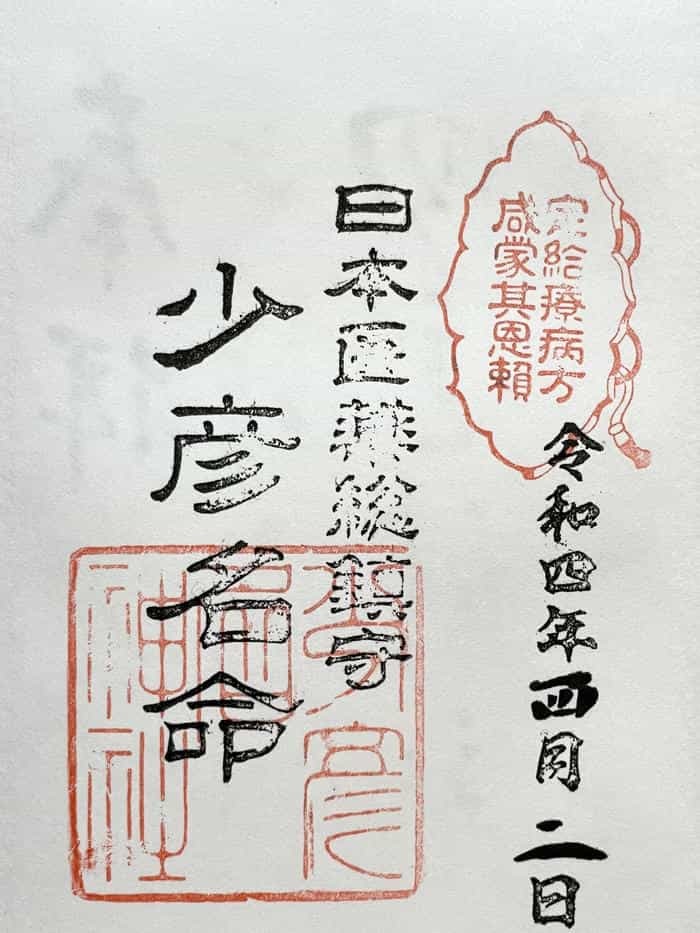 定給療病方
咸蒙其恩頼
令和四年四月二日
日本医薬総鎮守
少彦名命
少彦名神社